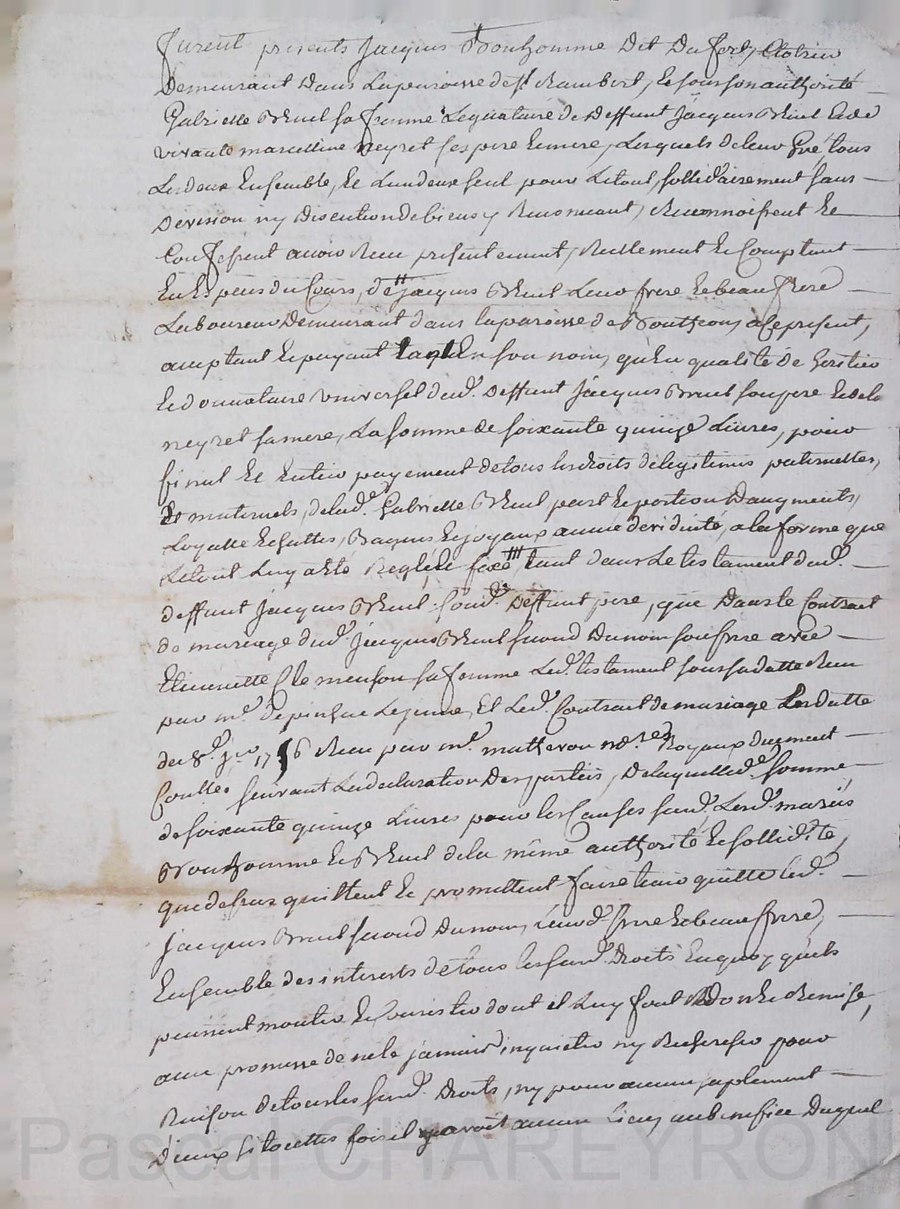 furent presents Jacques Bonhomme dit Dufort,
demeurant dans la paroisse de st Rambert, et sous son authorité
Gabrielle Breul sa femme Legitaire de deffunt Jacques Breul et de
vivante marcelline neyret ses pere et mere, Lesquels de leur gré tous
Les deux Ensemble, et L'un deux seul pour Le tout, sollidairement sans
division ny discution de biens y Renonceant, Reconnoissent et
Confessent avoir Reçu presentement, Reellement et Comptant
En Especes du Cours, de Jacques Breul Leur frere et beau frere
Laboureur demeurant dans la paroisse de Bouthéon, a ce present,
acceptant et payant tant En son nom, qu'En qualité de heritier
et donnataire universel dud. deffunt Jacques Breul son pere et de la
neyret sa mere, La somme de soixante quinze Livres, pour
final et entier payement de tous les droits de legitimes paternelles,
et maternels, de lad.e Gabrielle Breul part et portion d'augments,
Loyalle Bagues et joyaux année de viduité, a la forme que
Le tout Luy a Eté Reglé et fixé tant dans Le testament dud.
deffunt Jacques Breul son d. deffunt pere, que dans le Contrat
de mariage dud. Jacques Breul second du nom son frere avec
Etiennette Clemenson sa femme Led. testament sous sa datte Reçu
par me. depingue Lejeune, Et Led. Contrat de mariage Les datte
du 8e. 17 6 Reçu par me. matheron nore. Royaux duement
Conllés suivant La declaration des parties, de laquelle d.e somme
de soixante quinze Livres pour les Causes susd. Lesd. mariés
Bonhomme et Breul de la même authorité et sollidité,
que dessus quittent et promettent faire tenir quitte led.
Jacques Breul second du nom, Leurd. frere et beau frere,
Ensemble des interets de tous les susd. droits En quoy qu'ils
puissent monter et Consister dont il Luy font don et Remise,
avec promesse de ne le jamais inquieter ny Rechercher pour
Raison de tous les susd. droits, ny pour aucun suplement
d'iceux si toutes fois il y avoit aucun Lieu au benefice duquel
Pascal CHAREYRON